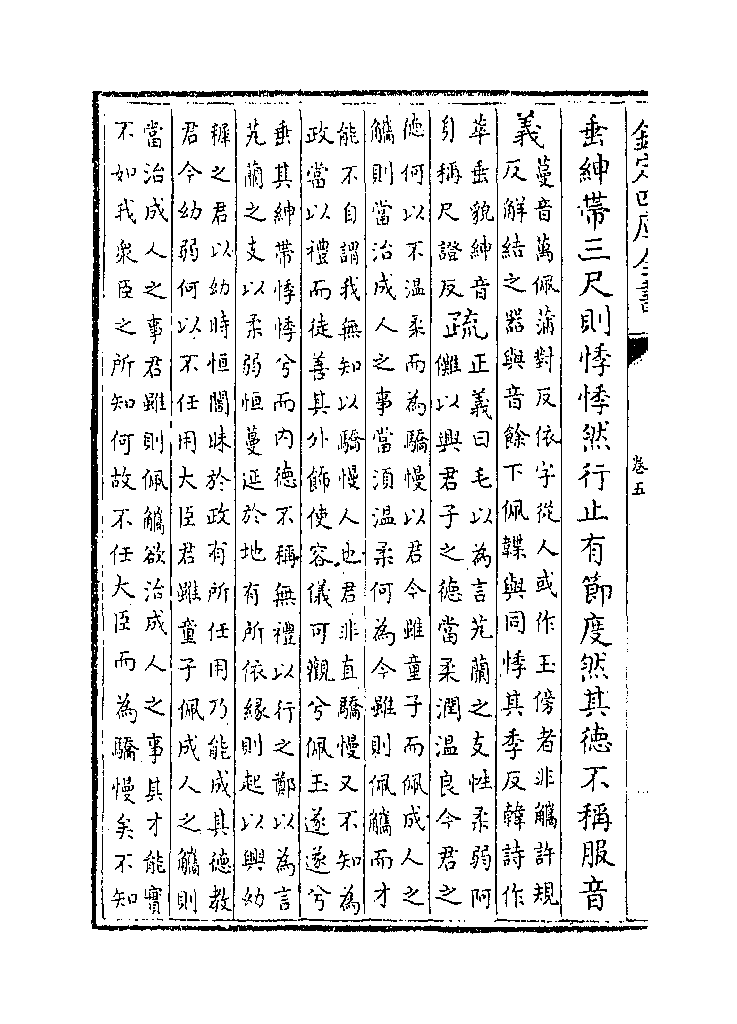 欽定四庫全書
卷五
垂紳帶三尺則悸悸然行止有節度然其徳不稱服音
義蔓音萬佩蒲對反依字從人或作玉傍者非觿許規
反解結之器與音餘下佩韘與同悸其季反韓詩作
萃垂貌紳音
身稱尺證反疏正義曰毛以為言芄蘭之支性柔弱阿
儺以興君子之徳當柔潤温良今君之
徳何以不温柔而為驕慢以君今雖童子而佩成人之
觿則當治成人之事當須温柔何為今雖則佩觿而才
能不自謂我無知以驕慢人也君非直驕慢又不知為
政當以禮而徒善其外飾使容儀可觀兮佩玉遂遂兮
垂其紳帶悸悸兮而内徳不稱無禮以行之鄭以為言
芄蘭之支以柔弱恒蔓延於地有所依縁則起以興幼
穉之君以幼時恒闇昧於政有所任用乃能成其徳教
君今幼弱何以不任用大臣君雖童子佩成人之觿則
當治成人之事君雖則佩觿欲治成人之事其才能實
不如我衆臣之所知何故不任大臣而為驕慢矣不知